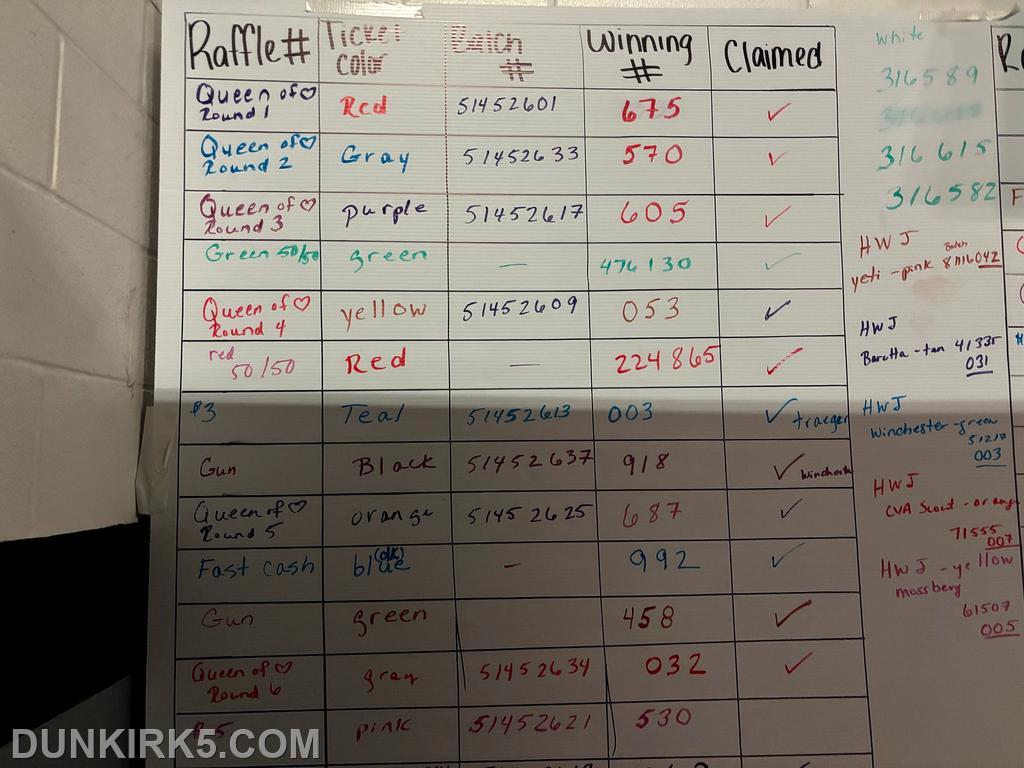 Raffle # Ticket color Batch # Winning # Claimed
Queen of ♡ Round 1 Red 51452601 675 ✓
Queen of ♡ Round 2 Gray 51452633 570 ✓
Queen of ♡ Round 3 purple 51452617 605 ✓
Green 50/50 green — 476130 ✓
Queen of ♡ Round 4 yellow 51452609 053 ✓
red 50/50 Red — 224865 ✓
#3 Teal 51452613 003 ✓ traeger
Gun Black 51452637 918 ✓
Queen of ♡ Round 5 orange 51452625 687 ✓
Fast cash blue (dk) — 992 ✓
Gun green 458 ✓
Queen of ♡ Round 6 gray 51452634 032 ✓
pink 51452621 530
white
316589
316615
316582
HWJ
Batch
yeti - pink 042
HWJ
Baretta - tan 41335
031
HWJ
Winchester - green
51217
003
HWJ
CVA Scout - orange
71555
007
HWJ - yellow
mossberg
61507
005
DUNKIRK5.COM